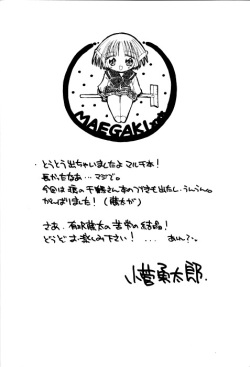 MAEGAKI
・とうとう出ちゃいましたよ マルチ本！
長かったなあ…マジで。
今回は 僕の千鶴さん本のつづきも出たし、うんうん。
がんばりました！（誰かが）
さあ、有明隆太の 苦労の結晶！
どうぞお楽しみ下さい！ … あれ？。
小菅勇太郎.